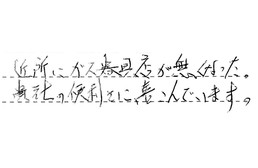 近所にガス器具店が無くなった。
貴社の便利さに喜んでいます。